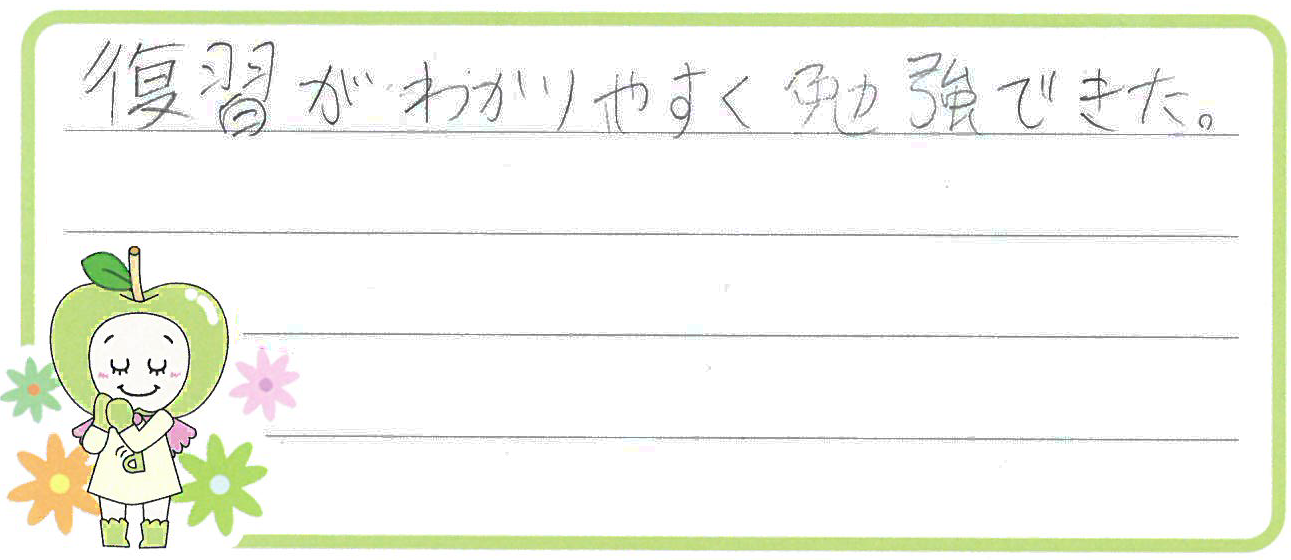 復習がわかりやすく勉強できた。